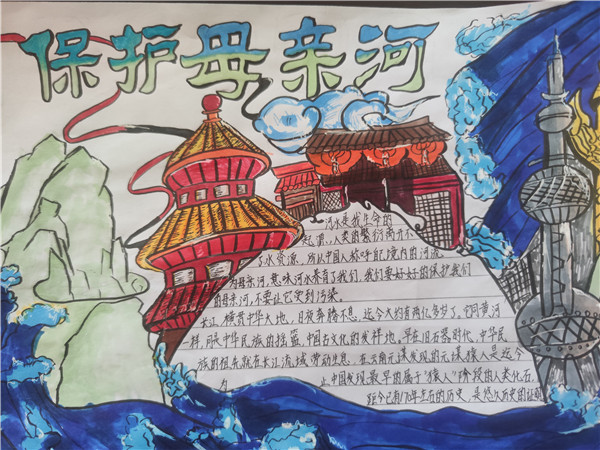 保护母亲河
河水是我生命的
起源，人类的繁衍离不
了水资源，所以中国人称呼自己境内的河流
为母亲河，意味河水养育了我们，我们要好好的保护我们
的母亲河，不要让它受到污染。
长江，横贯中华大地，日夜奔腾不息，迄今大约有两亿多岁了，它同黄河
一样，同永中华民族的摇篮，中国古文化的发祥地，早在旧石器时代，中华民
族的祖先就有长江流域劳动生息，在云南元谋发现的元谋猿人是迄今
为止中国发现最早的属于“猿人”阶段的人类化石，
距今已有170年左右的历史，是悠久历史的证明